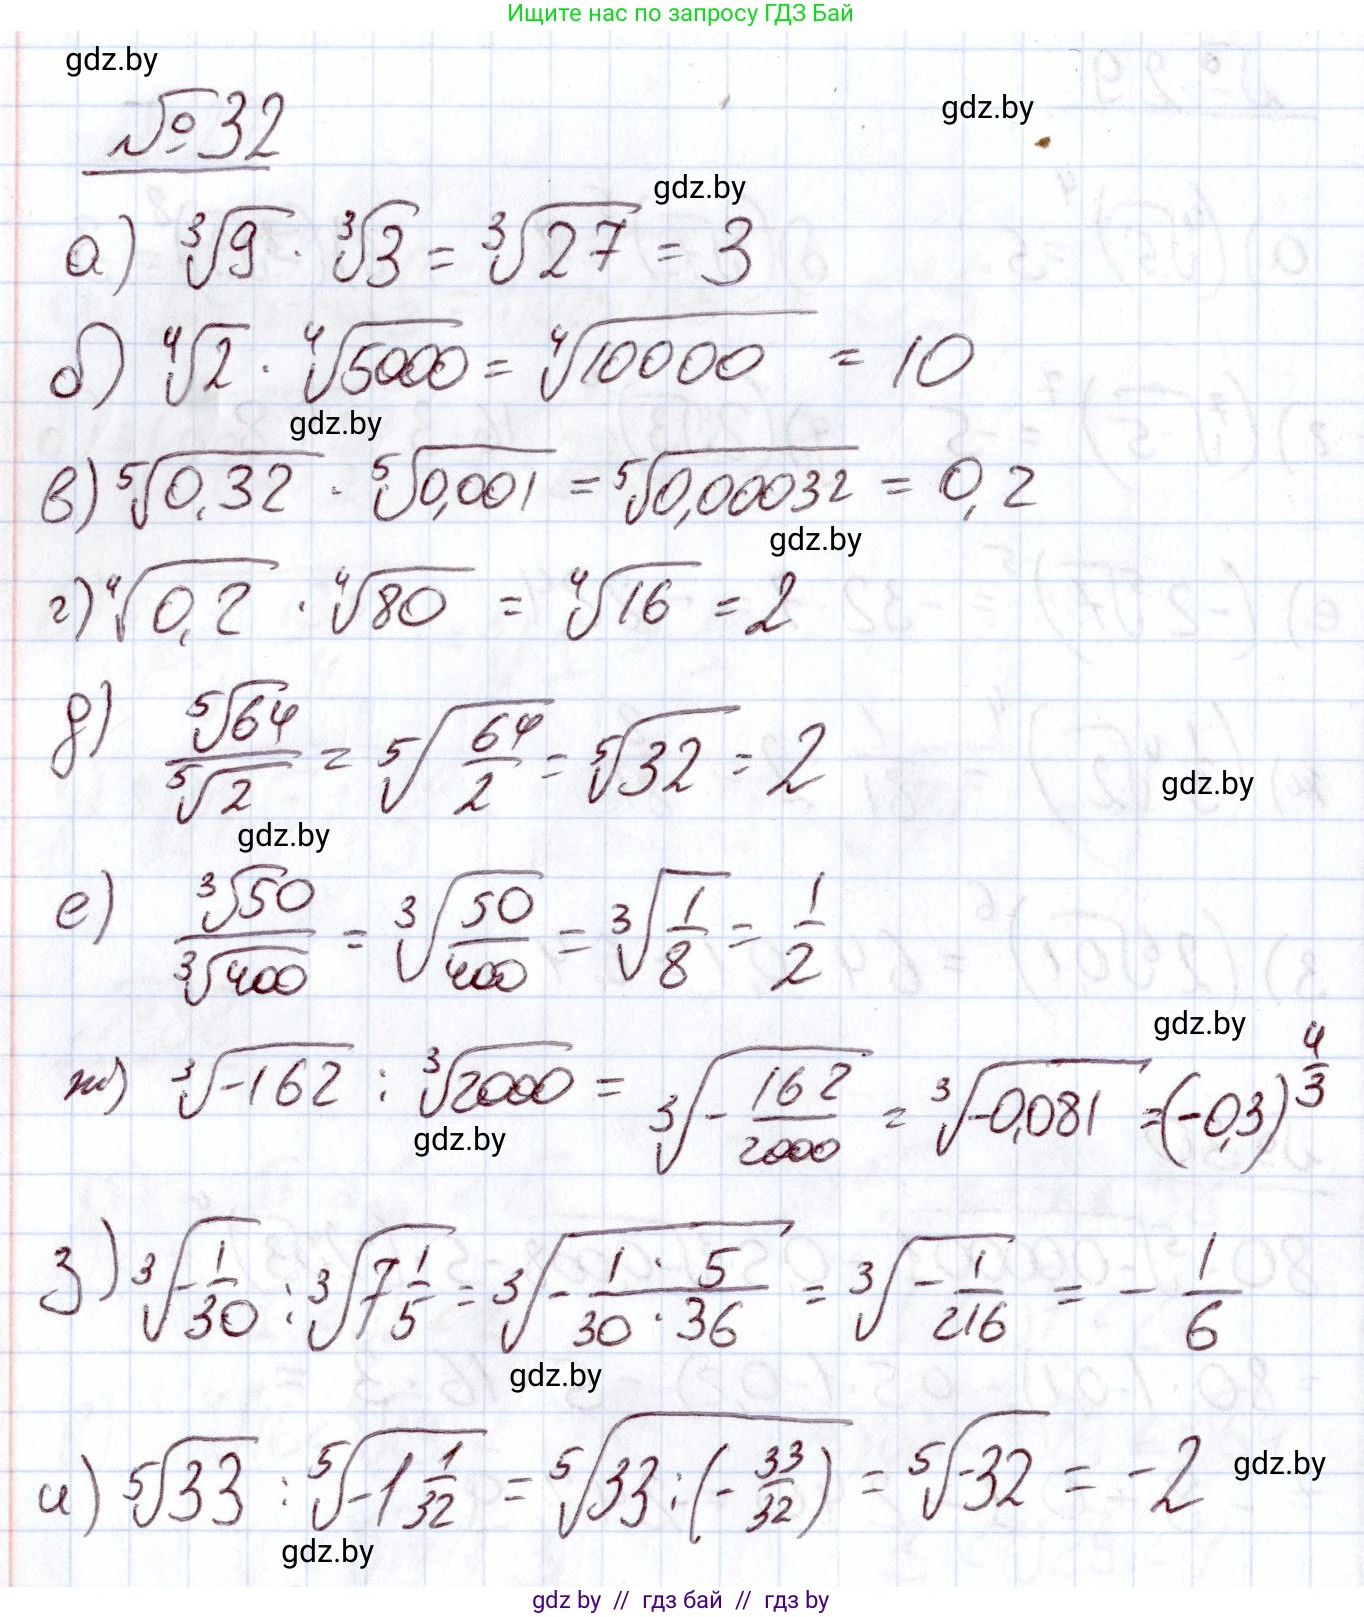 Ищите нас по запросу ГДЗ Бай
gdz.by
№ 32
gdz.by
gdz.by
а) ∛9 · ∛3 = ∛27 = 3
б) ∜2 · ∜5000 = ∜10000 = 10
gdz.by
в) ⁵√0,32 · ⁵√0,001 = ⁵√0,00032 = 0,2
gdz.by
г) ∜0,2 · ∜80 = ∜16 = 2
д) ⁵√64 / ⁵√2 = ⁵√(64/2) = ⁵√32 = 2
gdz.by
gdz.by
е) ∛50 / ∛400 = ∛(50/400) = ∛(1/8) = 1/2
gdz.by
ж) ∛-162 : ∛2000 = ∛(-162/2000) = ∛-0,081 = (-0,3)^(4/3)
gdz.by
з) ∛(-1/30) : ∛(7 1/5) = ∛(-(1 · 5)/(30 · 36)) = ∛(-1/216) = -1/6
gdz.by
и) ⁵√33 : ⁵√(-1 1/32) = ⁵√(33 : (-33/32)) = ⁵√-32 = -2
gdz.by
gdz.by
gdz by // гдз бай // гдз by